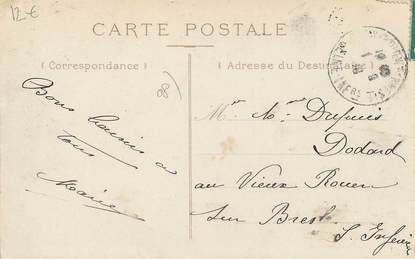 12€
CARTE POSTALE
(Correspondance)
(Adresse du Destinataire)
Bons baisers a
tous
Marie
Mr & Mme Dupuis
Dodard
au Vieux Rouen
sur Bresle
S. Inférieure